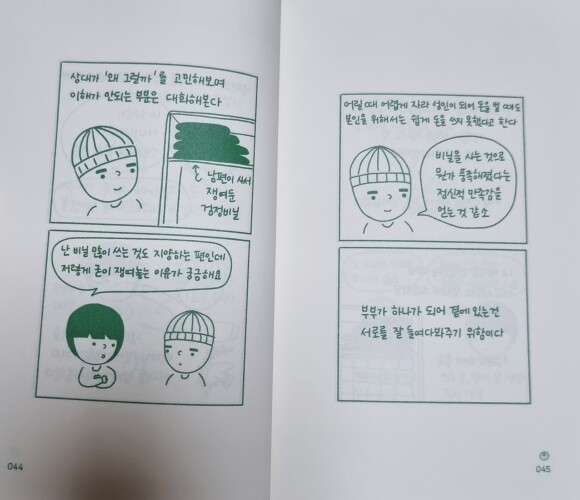 상대가 '왜 그럴까'를 고민해보며
이해가 안되는 부분은 대화해본다
남편이 사서
쟁여둔
검정비닐
난 비닐 많이 쓰는 것도 지양하는 편인데
저렇게 굳이 쟁여놓는 이유가 궁금해요
044
어릴 때 어렵게 자라 성인이 되어 돈을 벌 때도
본인을 위해서는 쉽게 돈을 쓰지 못했다고 한다
비닐을 사는 것으로
뭔가 풍족해졌다는
정신적 만족감을
얻는 것 같소
부부가 하나가 되어 곁에 있는건
서로를 잘 들여다봐주기 위함이다
045